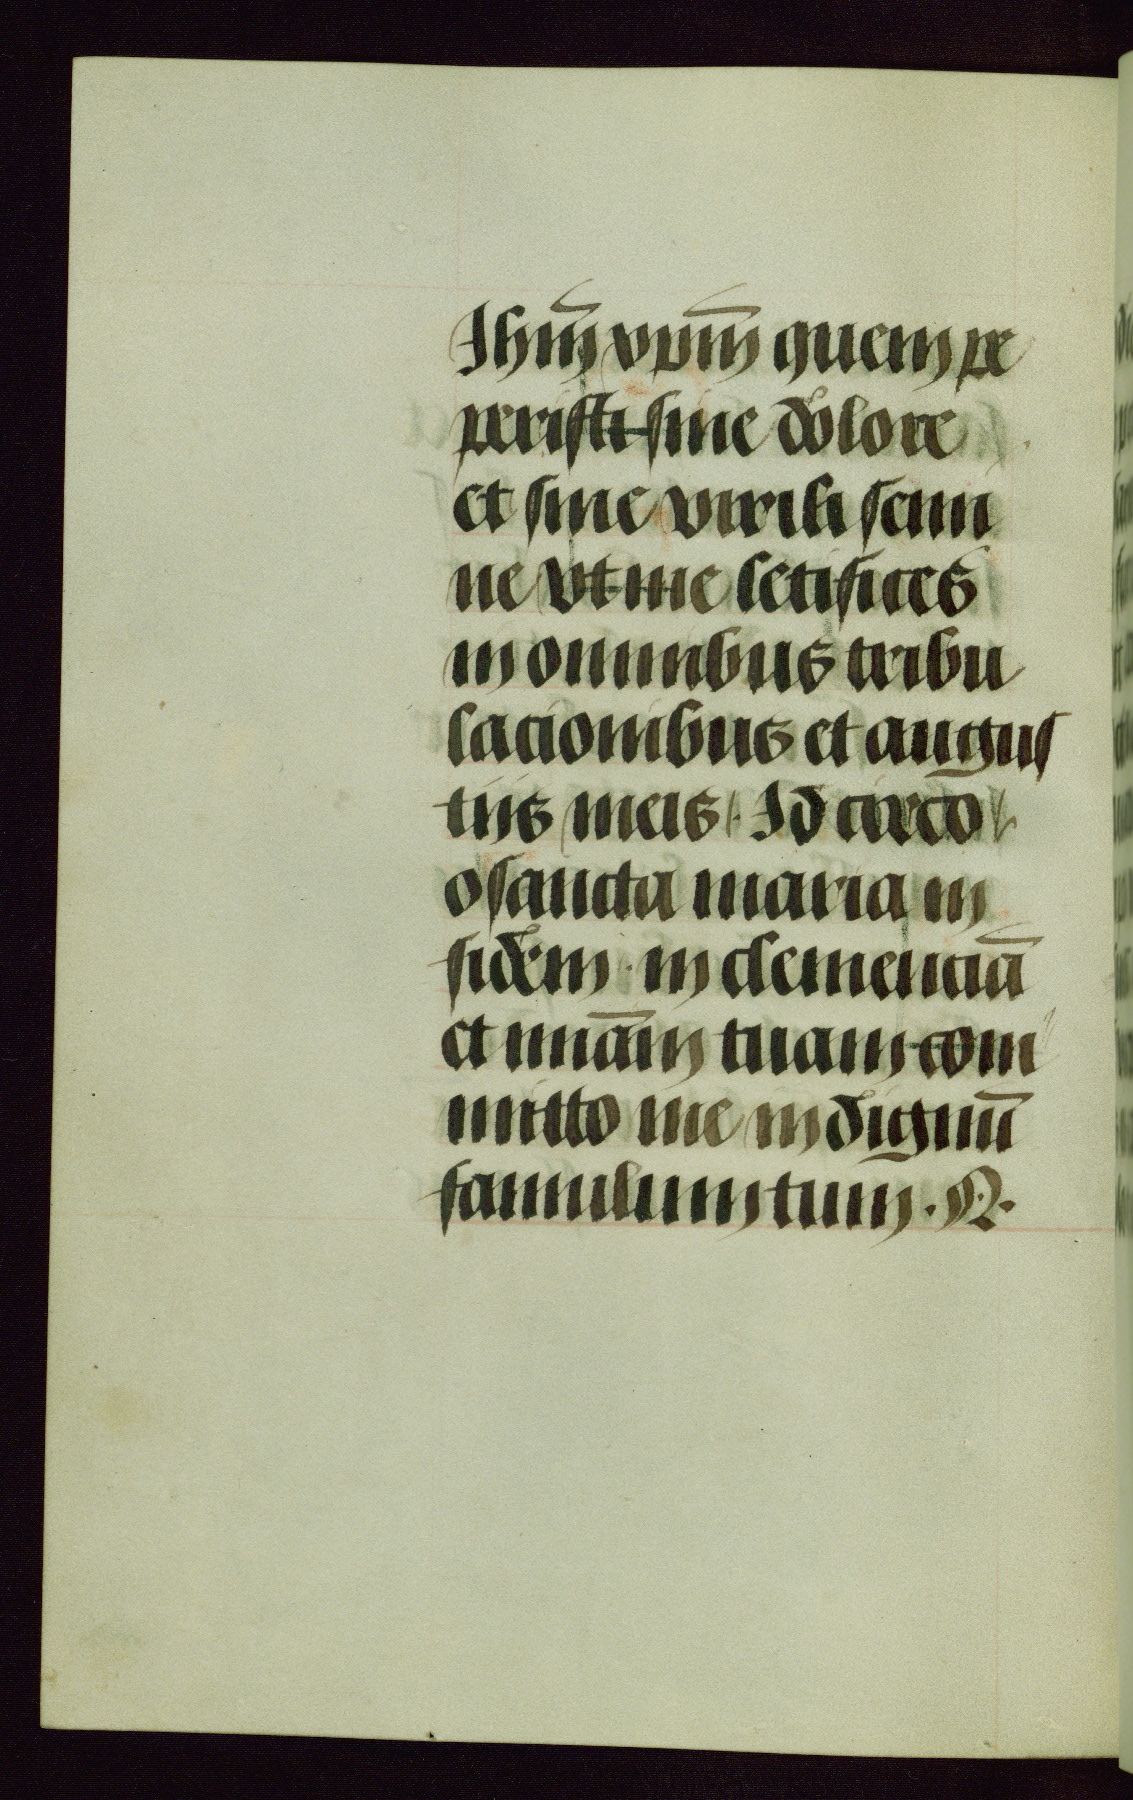 Ihm̄ xp̄m quem pe
peristi sine dolore
et sine virili semi
ne vt me letifices
in omnibus tribu
lacionibus et angus
tiis meis. Id circo
o sancta maria in
fidem. in clemenciā
et miām tuam com
mitto me indignū
famulum tuum. N.